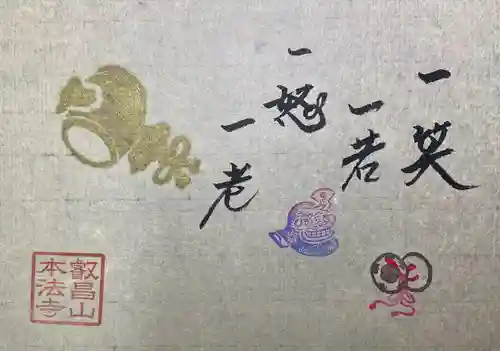 一笑
一若
一怒
一老
叡昌山
本法寺